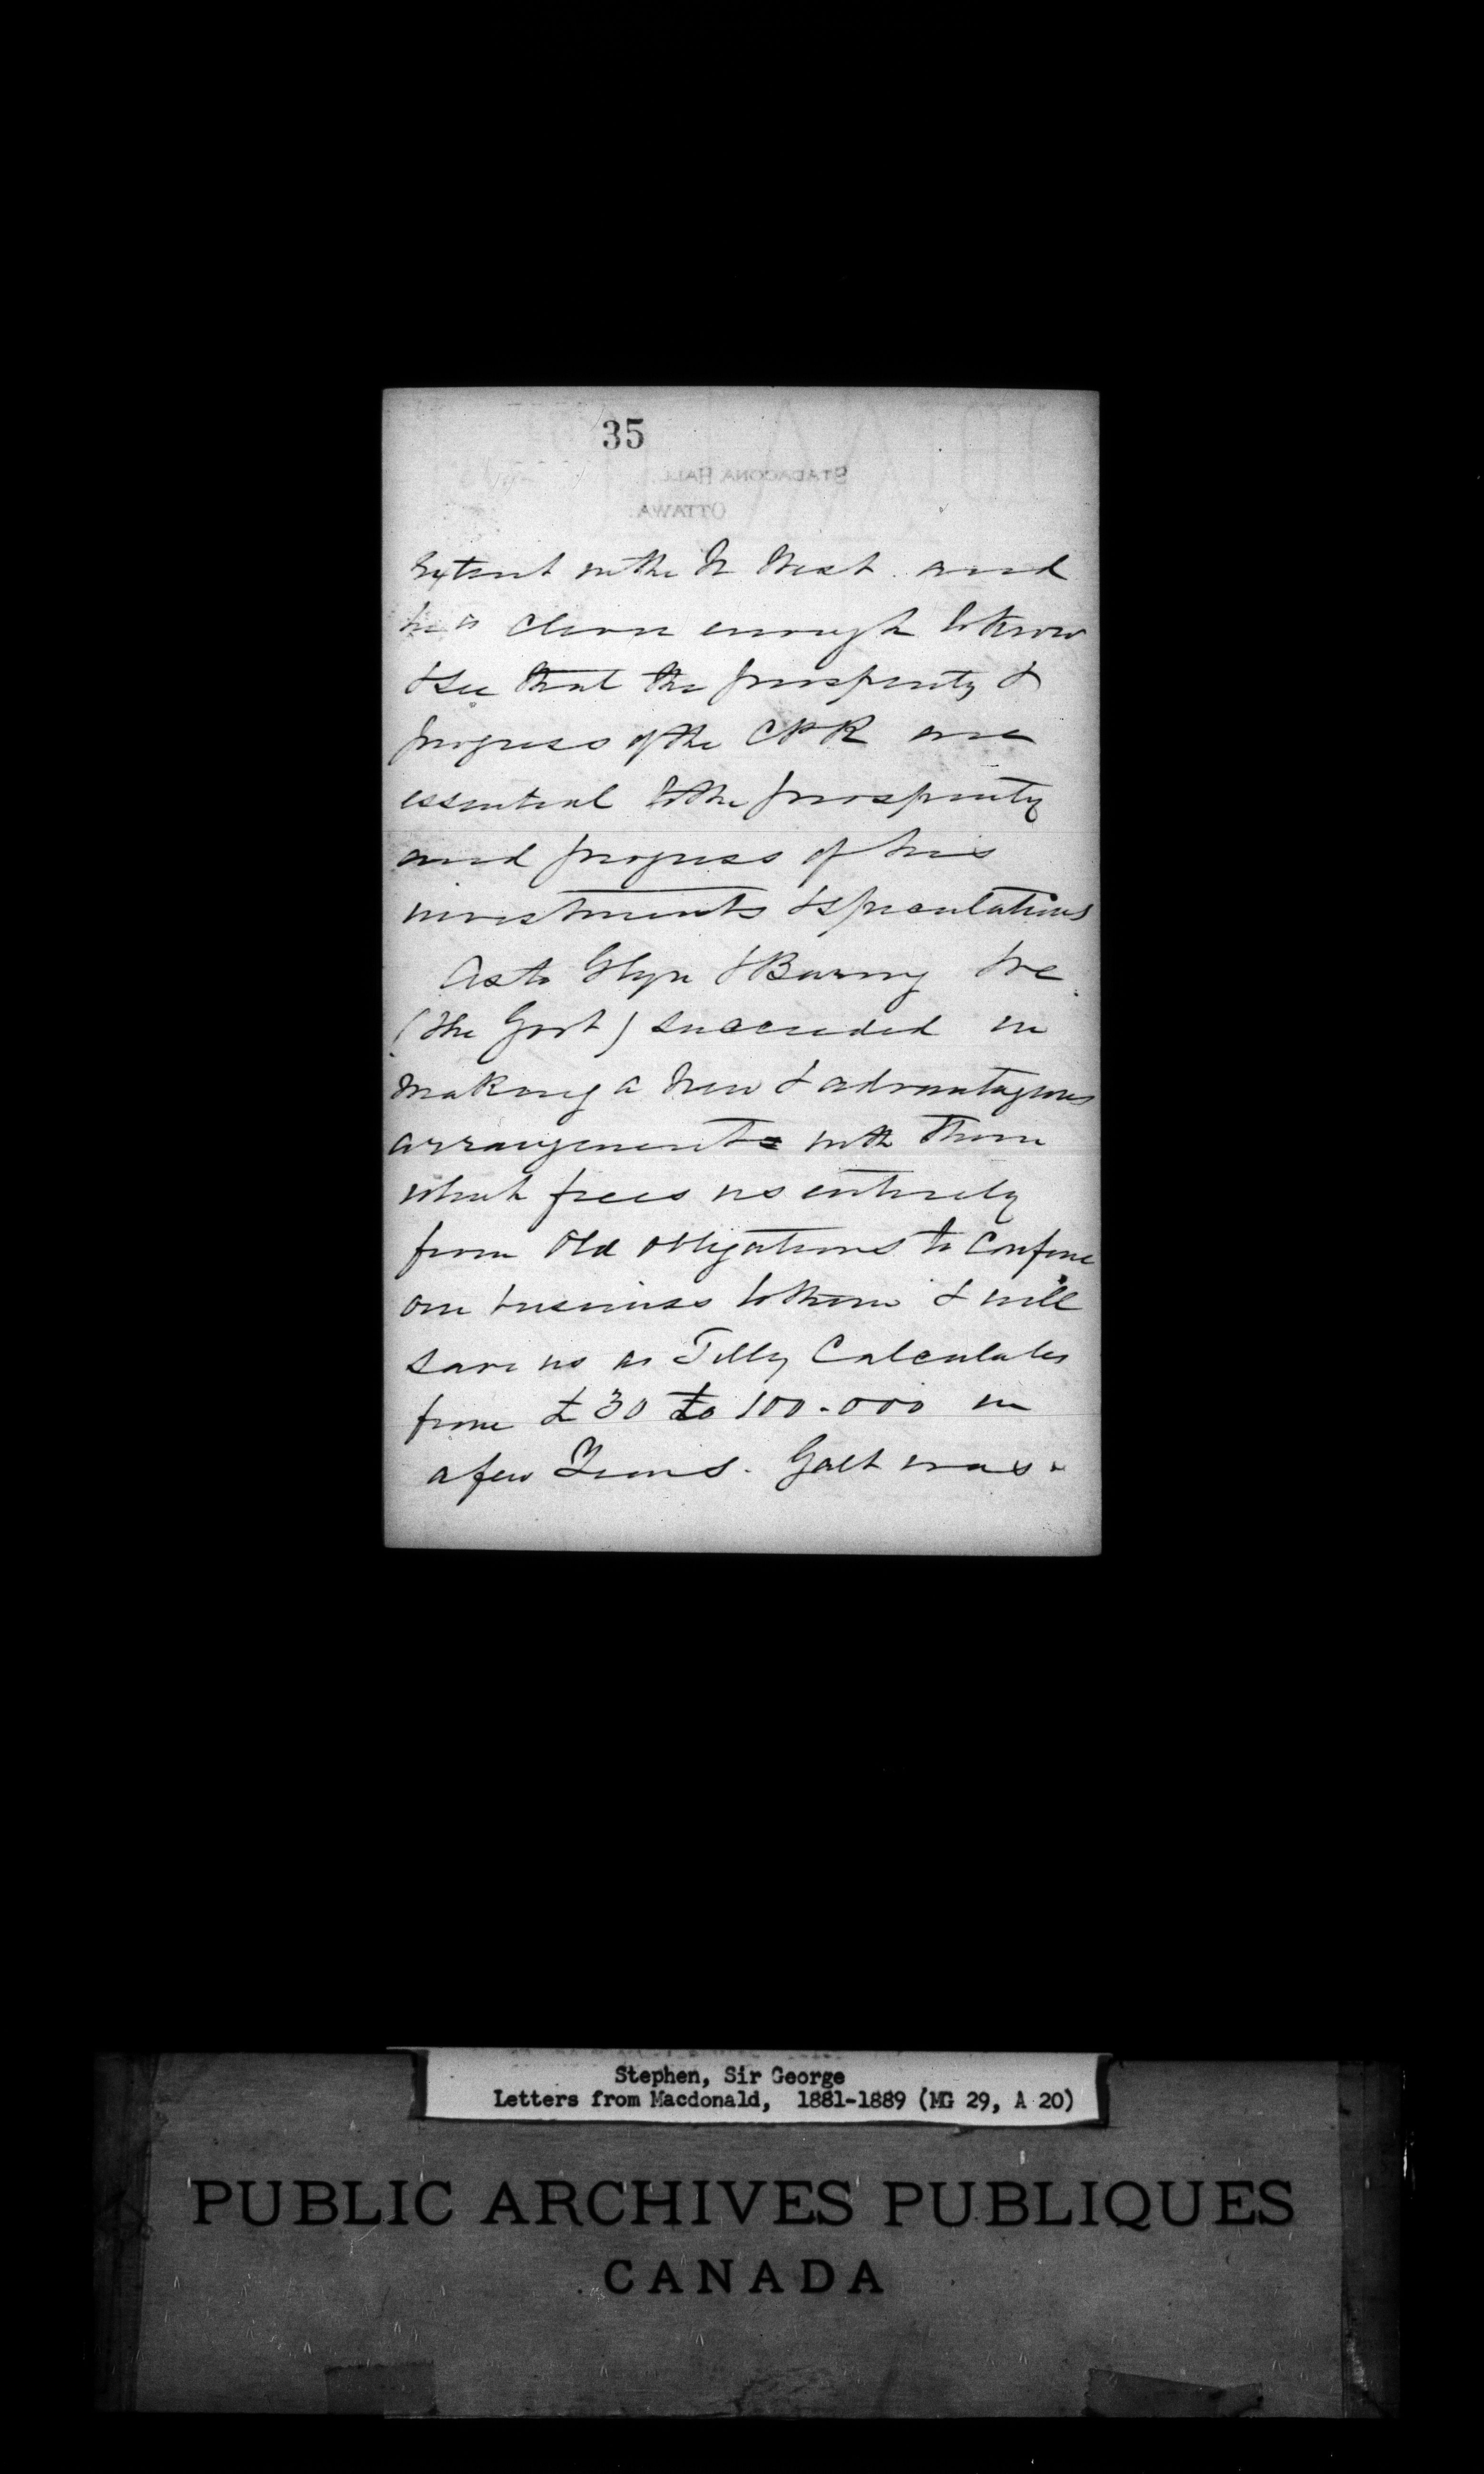 35
STADACONA HALL.
OTTAWA.
Extent in the N West. and
he is clever enough to know
& see that the prosperity &
progress of the CPR are
essential to the prosperity
and progress of his
investments & speculations
As to Glyn & Baring We
(the Govt) succeeded in
making a new & advantageous
arrangement with them
which frees us entirely
from old obligations to confine
our business to them & will
save us as Tilley Calculates
from £30 to 100.000 in
a few Years. Galt was
Stephen, Sir George
Letters from Macdonald, 1881-1889 (MG 29, A 20)
PUBLIC ARCHIVES PUBLIQUES
CANADA